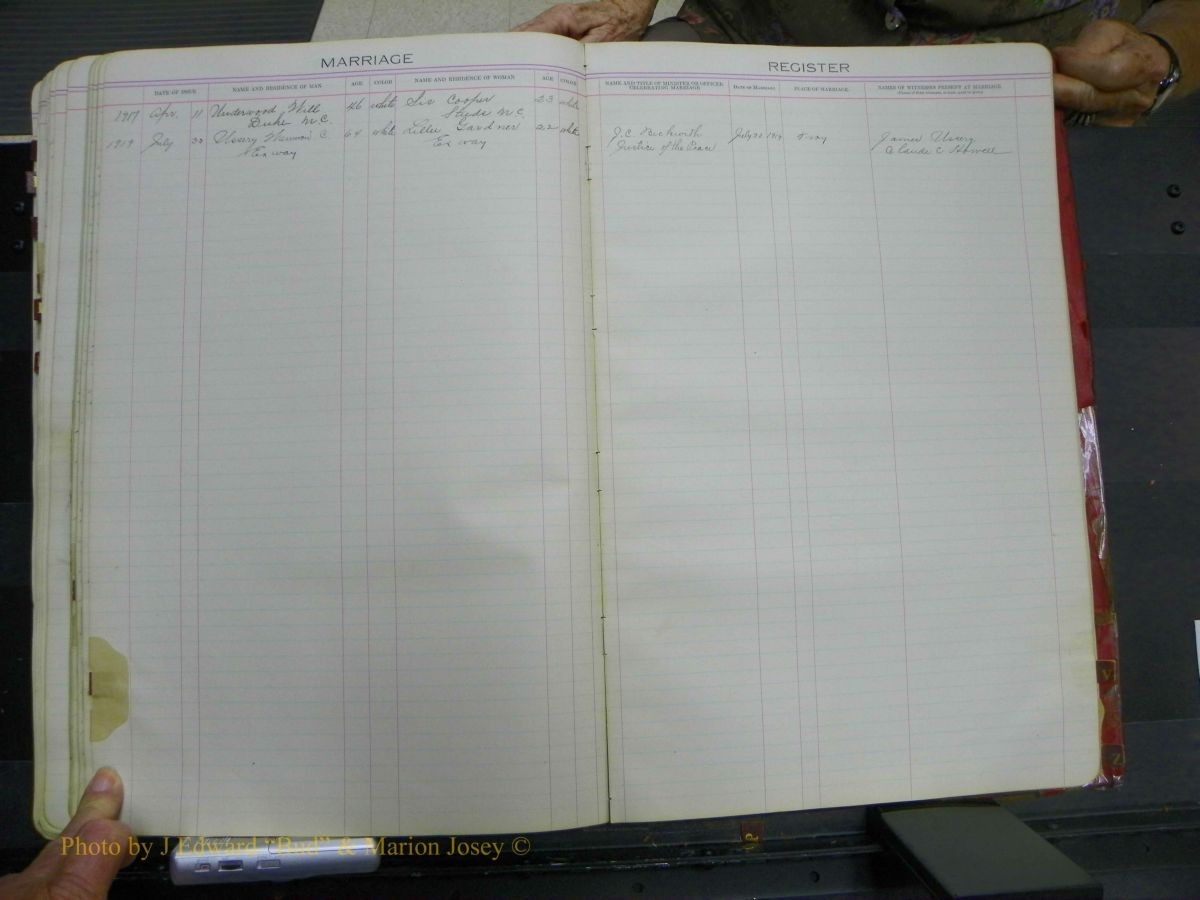 MARRIAGE
DATE OF ISSUE NAME AND RESIDENCE OF MAN AGE COLOR NAME AND RESIDENCE OF WOMAN AGE COLOR
1917 Apr. 11 Underwood Will 46 white Sis Cooper 23 white
Duke N.C. Hyde N.C.
1919 July C. 64 white Lillie Gardner 22 white
Ex way Ex way
REGISTER
NAME AND TITLE OF MINISTER OR OFFICER CELEBRATING MARRIAGE DATE OF MARRIAGE PLACE OF MARRIAGE NAMES OF WITNESSES PRESENT AT MARRIAGE
J.C. Beckwith July 1919 James Usery
Justice of the Peace Claude C Howell
V
Z
Photo by J Edward "Bud" & Marion Josey ©